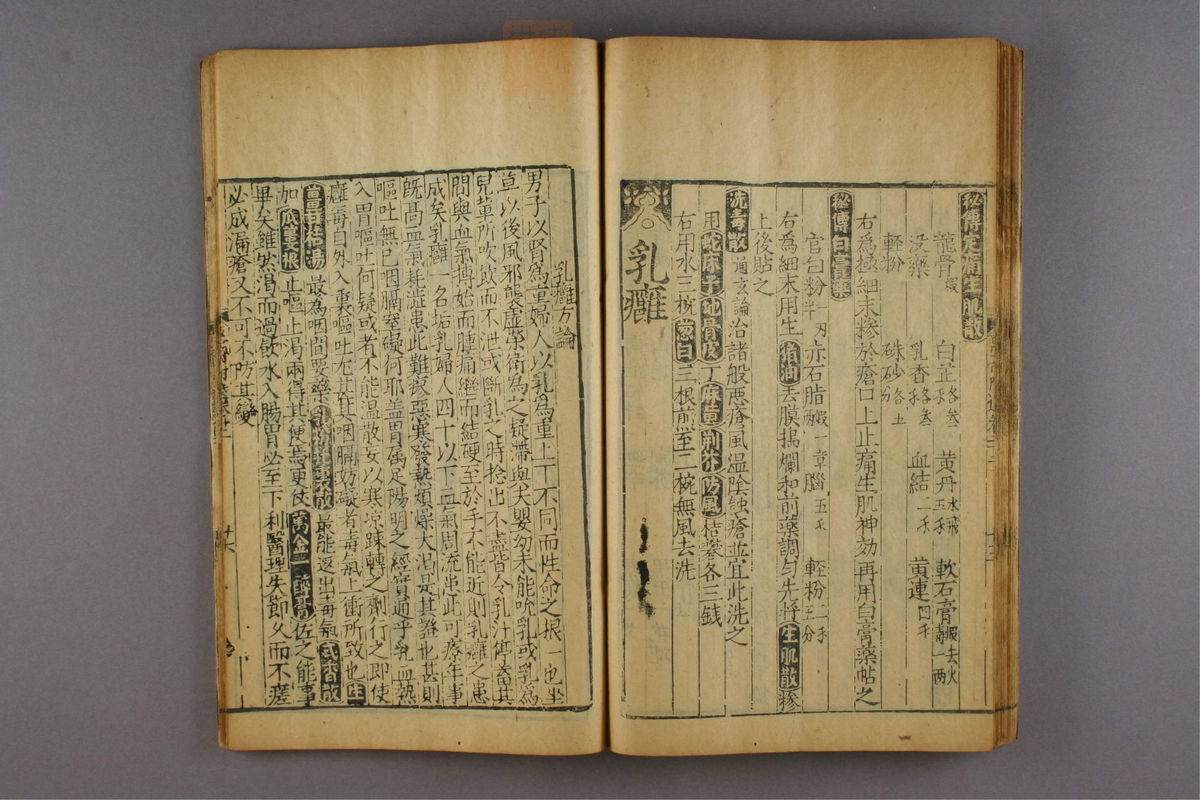 秘傳定痛生肌散
龍骨煅 白芷各叁 黃丹水飛 軟石膏煅去火
沒藥 乳香各叁 血結二 黃連四
輕粉 硃砂各五
右爲極細末摻於瘡口上止痛生肌神効再用白膏藥帖之
秘傳白膏藥
官白粉半 赤石脂煅一 章腦五 輕粉二 五分
右爲細末用生猪油去膜搗爛和前藥調勻先將生肌散摻
上後貼之
洗毒散 通玄論治諸般惡瘡風温陰蝕瘡並宜此洗之
用蛇床子地骨皮丁麻黃荆芥防風桔礬各三錢
右用水三椀葱白三根煎至二椀無風去洗
乳癰
乳癰方論
男子以腎爲重婦人以乳爲重上下不同而性命之根一也坐
草以後風邪襲虛榮衛爲之疑滯與夫嬰幼未能吮乳或乳爲
兒輩所吹飲而不泄或斷乳之時捻出不盡皆令乳汁停蓄其
間與血氣搏始而腫痛繼而結硬至於手不能近則乳癰之患
成矣乳癰一名垢乳婦人四十以下血氣周流患此可療年事
旣高血氣耗澁患此難瘥惡寒發熱煩燥大渴是其證也甚則
嘔吐無已咽膈窒礙何耶盖胃屬足陽明之經實通乎乳血熱
入胃嘔吐何疑或者不能温散女以寒凉踈轉之劑行之即使
癰毒自外入裏嘔吐尤甚其咽膈妨礙者毒氣上衝所致也生
最爲咽間要藥 最能返出毒氣 香散
加瓜蔞根止嘔止渴兩得其便焉更使萬金 佐之能事
畢矣雖然渴而過飲水入腸胃必至下利醫理失節久而不瘥
必成漏瘡又不可不防其變